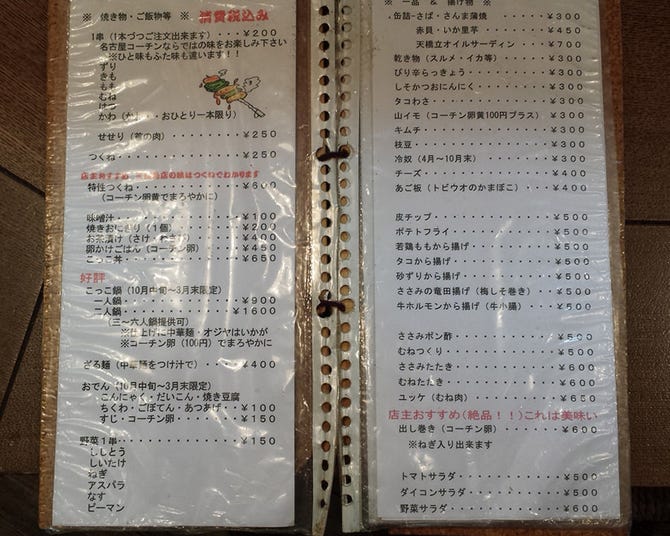 ※ 焼き物・ご飯物等 ※ 消費税込み
1串(1本づつご注文出来ます)・・・・¥200
名古屋コーチンならではの味をお楽しみ下さい
※ひと味もふた味も違います!!
ずり
きも
もも
むね
はつ
かわ( おひとり一本限り)
せせり(首の肉)・・・・・・・・・・¥250
つくね・・・・・・・・・・・・・・¥250
店主おすすめ 店の味はつくねでわかります
特性つくね・・・・・・・・・・・・¥600
(コーチン卵黄でまろやかに)
味噌汁・・・・・・・・・・・・・・¥100
焼きおにぎり(1個)・・・・・・・・¥200
お茶漬け(さけ・わさび)・・・・・・¥400
卵かけごはん(コーチン卵)・・・・・¥450
こっこ丼・・・・・・・・・・・・・¥650
好評
こっこ鍋(10月中旬~3月末限定)
一人鍋・・・・・・・・・・・・・¥900
二人鍋・・・・・・・・・・・・¥1600
(三~六人鍋提供可)
※仕上げに中華麺・オジヤはいかが
※コーチン卵(100円)でまろやかに
ざる麺(中華麺をつけ汁で)・・・・・¥400
おでん(10月中旬~3月末限定)
こんにゃく・だいこん・焼き豆腐
ちくわ・ごぼてん・あつあげ・・・¥100
すじ・コーチン卵・・・・・・・・¥150
野菜1串・・・・・・・・・・・・・¥150
ししとう
しいたけ
ねぎ
アスパラ
なす
ピーマン
※ 一品 & 揚げ物 ※
缶詰-さば・さんま蒲焼・・・・・・・¥300
赤貝・いか里芋・・・・・・・・¥450
天橋立オイルサーディン・・・・¥700
乾き物(スルメ・イカ等)・・・・・・¥300
ぴり辛らっきょう・・・・・・・・・¥300
しそかつおにんにく・・・・・・・・¥300
タコわさ・・・・・・・・・・・・・¥300
山イモ(コーチン卵黄100円プラス)・¥300
キムチ・・・・・・・・・・・・・・¥300
枝豆・・・・・・・・・・・・・・・¥300
冷奴(4月~10月末)・・・・・・・・¥300
チーズ・・・・・・・・・・・・・・¥400
あご板(トビウオのかまぼこ)・・・・¥400
皮チップ・・・・・・・・・・・・・¥500
ポテトフライ・・・・・・・・・・・¥500
若鶏ももから揚げ・・・・・・・・・¥500
タコから揚げ・・・・・・・・・・・¥500
砂ずりから揚げ・・・・・・・・・・¥500
ささみの竜田揚げ(梅しそ巻き)・・・¥500
牛ホルモンから揚げ(牛小腸)・・・・¥500
ささみポン酢・・・・・・・・・・・¥500
むねつくり・・・・・・・・・・・・¥500
ささみたたき・・・・・・・・・・・¥600
むねたたき・・・・・・・・・・・・¥600
ユッケ(むね肉)・・・・・・・・・・¥650
店主おすすめ(絶品!!)これは美味い
出し巻き(コーチン卵)・・・・・・・¥600
※ねぎ入り出来ます
トマトサラダ・・・・・・・・・・・¥500
ダイコンサラダ・・・・・・・・・・¥500
野菜サラダ・・・・・・・・・・・・¥600